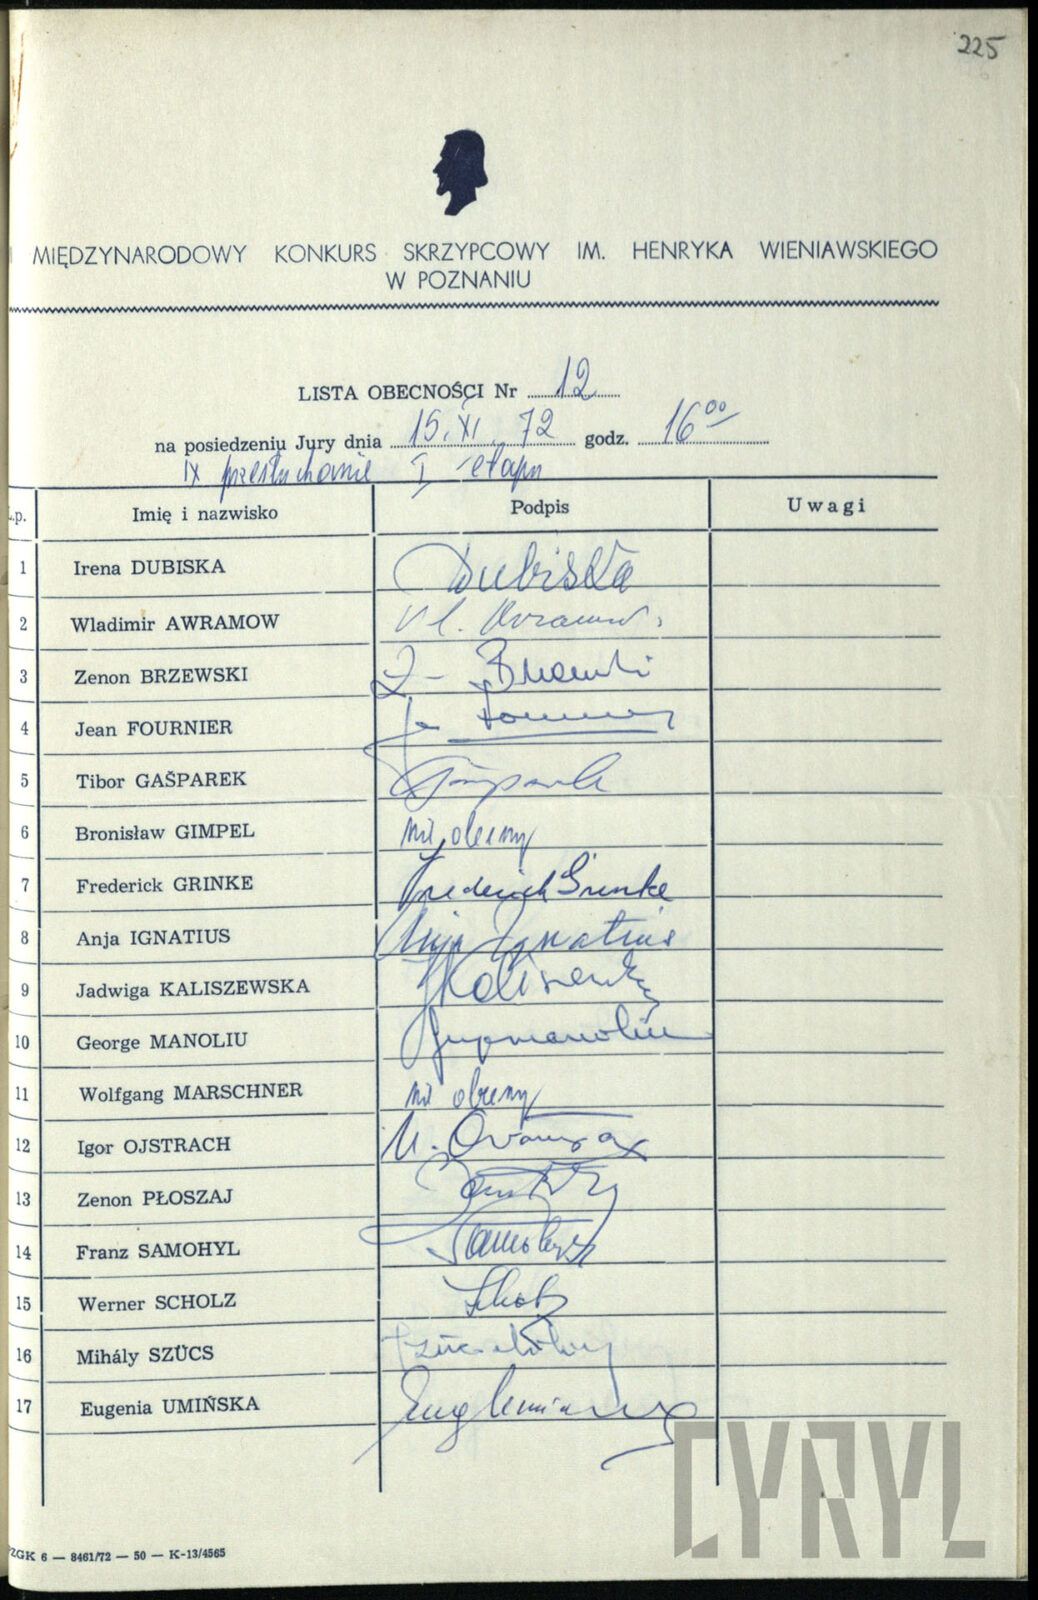 225
I MIĘDZYNARODOWY KONKURS SKRZYPCOWY IM. HENRYKA WIENIAWSKIEGO
W POZNANIU
LISTA OBECNOŚCI Nr 12
na posiedzeniu Jury dnia 15.XI.72 godz. 16⁰⁰
IX przesłuchanie I etapu
L.p. Imię i nazwisko Podpis Uwagi
1 Irena DUBISKA Dubiska
2 Wladimir AWRAMOW Vl. Avramov
3 Zenon BRZEWSKI Z. Brzewski
4 Jean FOURNIER Je Fournier
5 Tibor GAŠPAREK Gašparek
6 Bronisław GIMPEL nieobecny
7 Frederick GRINKE Frederick Grinke
8 Anja IGNATIUS Anja Ignatius
9 Jadwiga KALISZEWSKA JKaliszewska
10 George MANOLIU Manoliu
11 Wolfgang MARSCHNER nieobecny
12 Igor OJSTRACH И. Ойстрах
13 Zenon PŁOSZAJ
14 Franz SAMOHYL Samohyl
15 Werner SCHOLZ Scholz
16 Mihály SZÜCS Szücs Mihály
17 Eugenia UMIŃSKA Eug Umińska
ZGK 6 — 8461/72 — 50 — K-13/4565
CYRYL